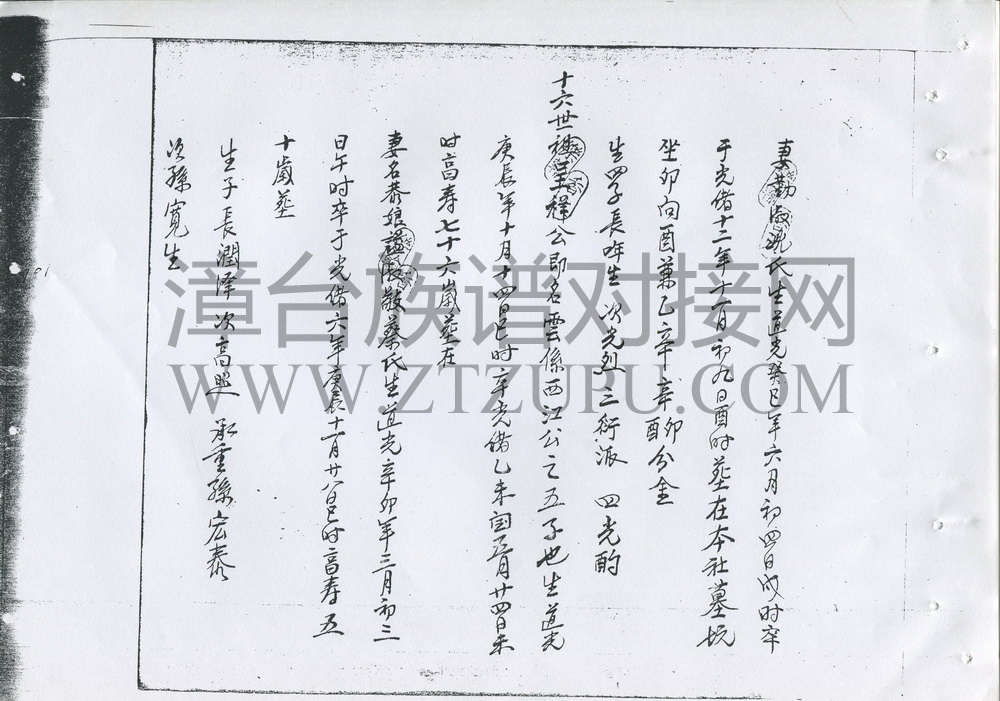 妻勤淑沈氏生道光癸巳年六月初四日戌时卒
于光绪十二年十一月初九日酉时葬在本社墓坑
坐卯向酉兼乙辛辛酉卯分金
生四子長年生 次光烈 三衍派 四光酌
十六世諱呈释公即名雲係西江公之五子也生道光
庚辰年十月十四日巳时卒光绪乙未年五月廿四日未
时高寿七十六歲葬在
妻名恭娘謚淑敬蔡氏生道光辛卯年三月初三
日午时卒于光绪六年庚辰十一月廿八日巳时高寿五
十歲葬
生子長潤泽 次高照 承重孫宏泰
次孫寬生
漳台族谱对接网
WWW.ZTZUPU.COM